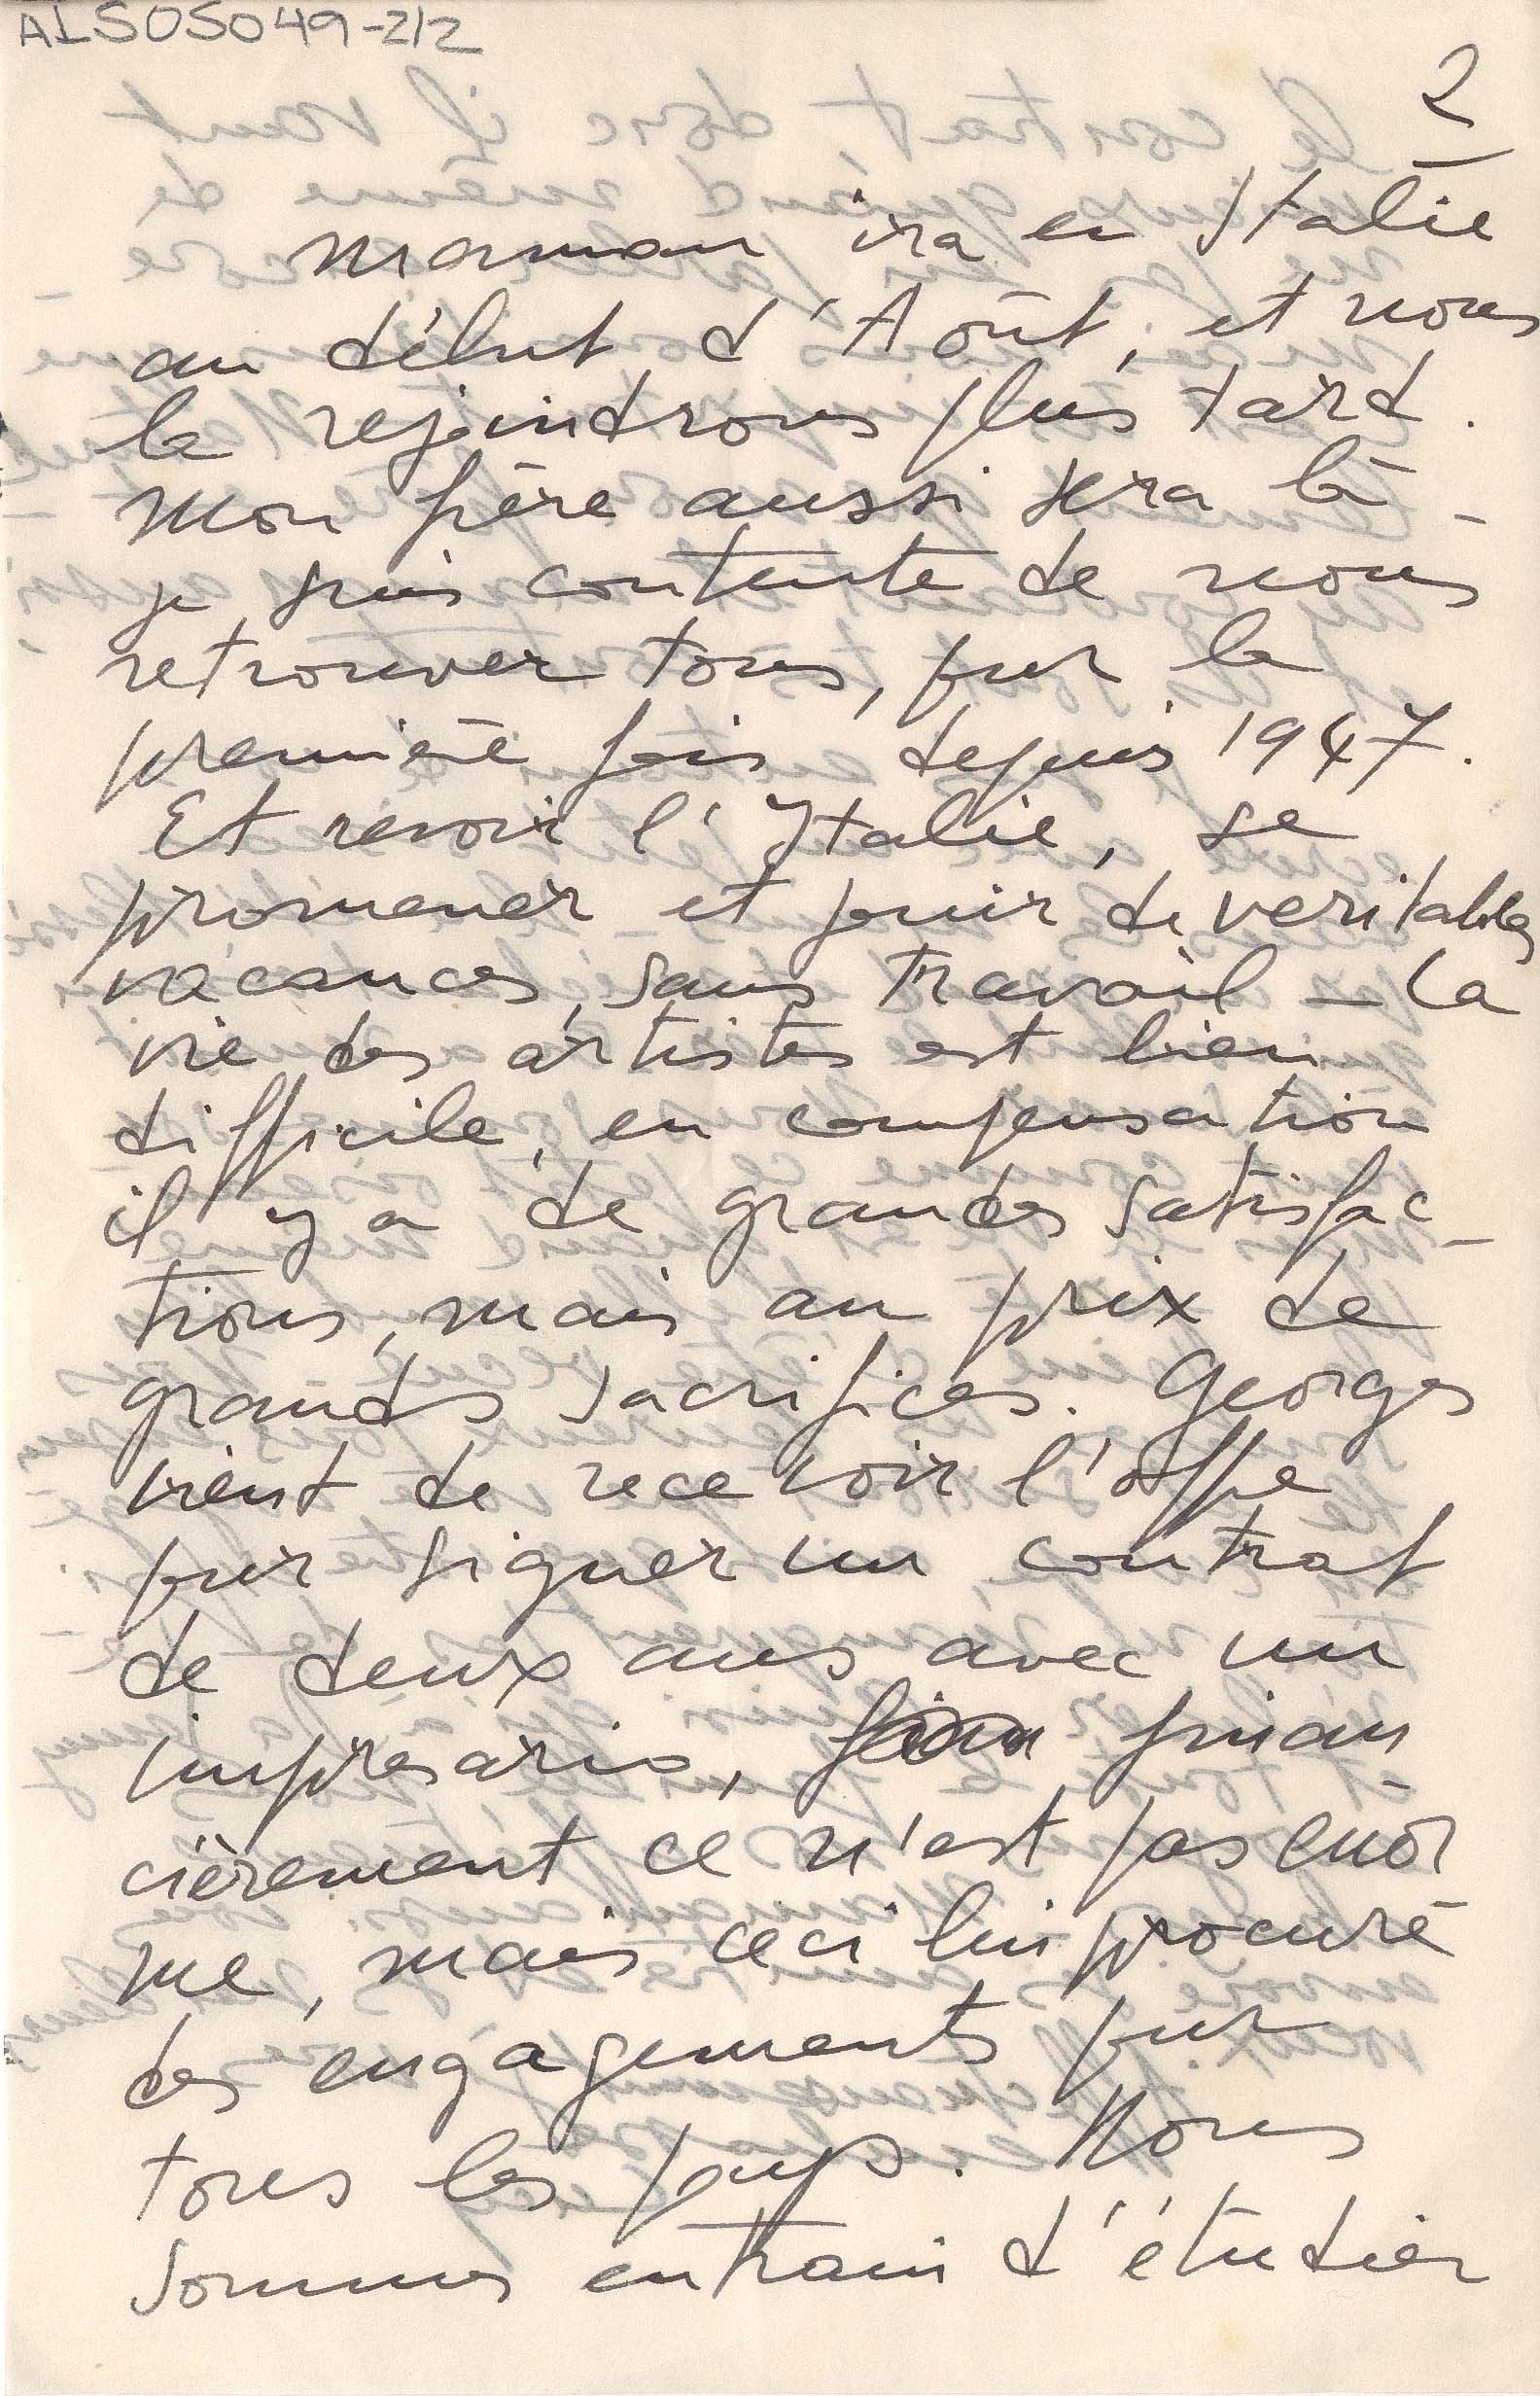 ALS05049-2/2
2
Maman ira en Italie
au début d'Août, et nous
la rejoindrons plus tard.
Mon père aussi sera là -
je suis contente de nous
retrouver tous, pur la
première fois depuis 1947.
Et revoir l'Italie, se
promener et jouir de veritables
vacances, sans travail - La
vie des artistes est bien
difficile, en compensation
il y a de grandes satisfac-
tions, mais au prix de
grands sacrifices. Georges
vient de recevoir l'offre
pur signer un contrat
de deux ans avec un
impresario, finan-
cièrement ce n'est pas enor
me, mais ceci lui procure
des engagements pur
tous les pays. Nous
sommes en train d'étudier